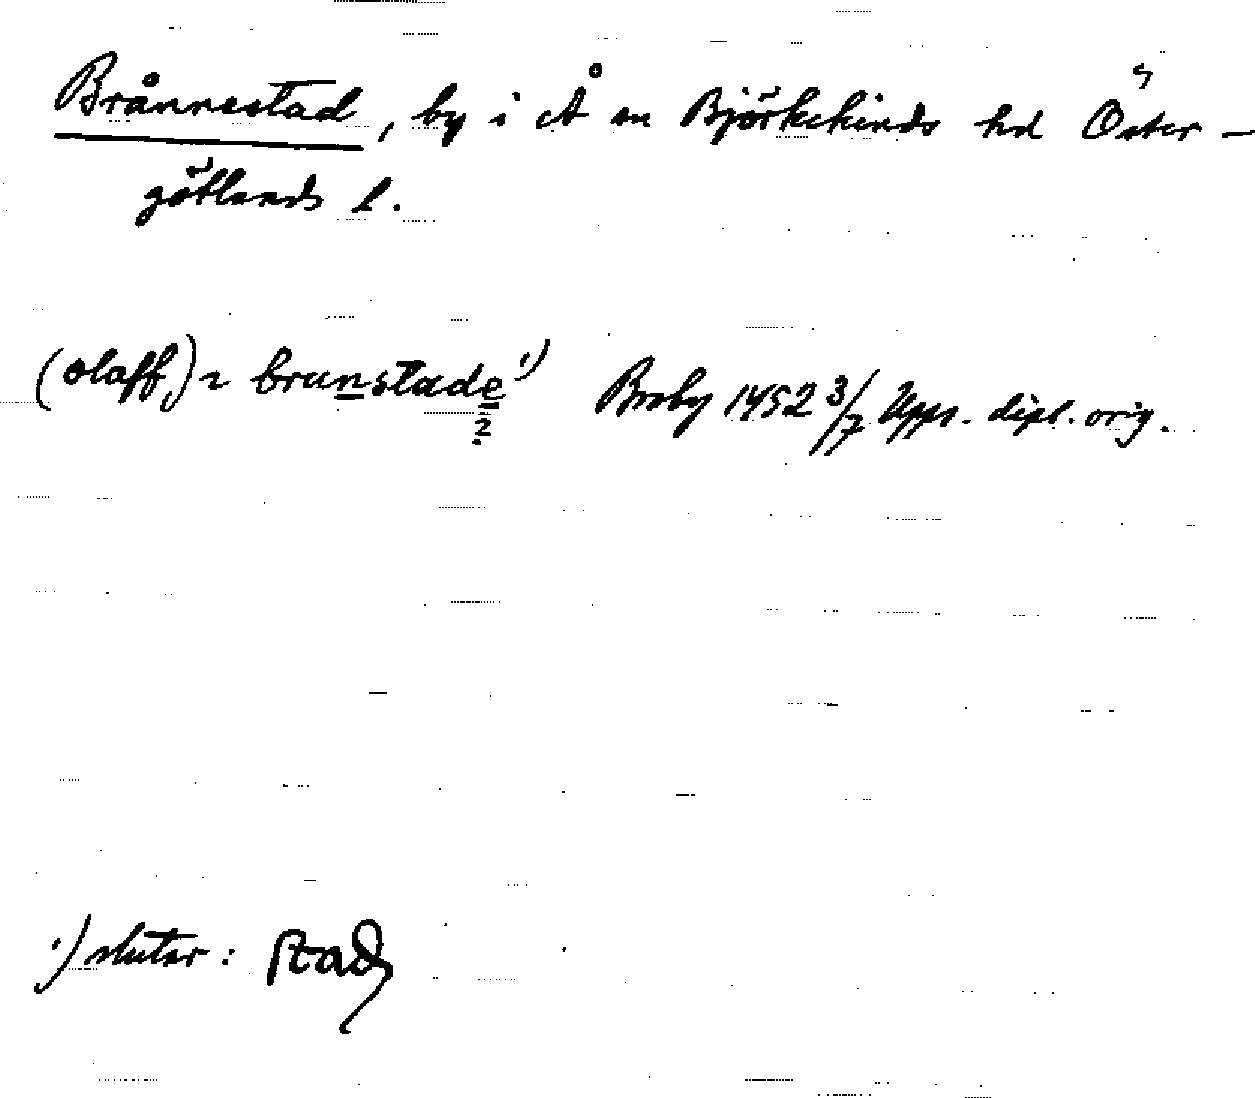 Brånnestad, by i Å sn Björkekinds hd Öster-
götlands l.
(olaff) i brunstade 1) Broby 1452 3/7 Upps. dipl. orig.
2
1) slutar: stad